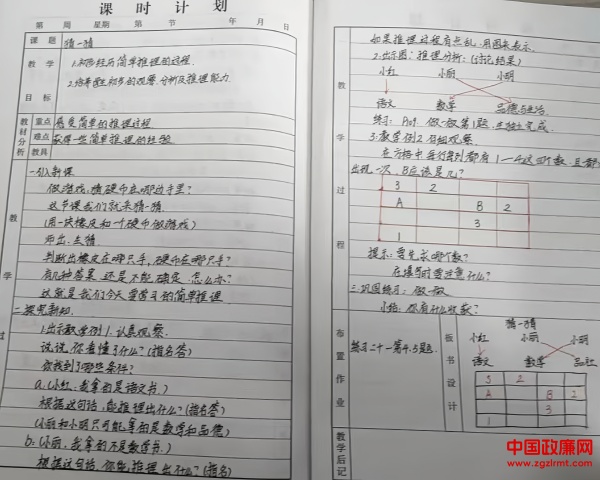 课时计划
第 周 星期 第 节 年 月 日
课题 猜一猜
教学目标
1.初步经历简单推理的过程.
2.培养学生初步的观察.分析及推理能力.
教材分析
重点 感受简单的推理过程
难点 获得一些简单推理的经验
教具
教学过
一.引入新课
做游戏:猜硬币在哪边手里?
这节课我们就来猜一猜.
(用一块橡皮和一个硬币做游戏)
师出.生猜.
判断出橡皮在哪只手,硬币在哪只手?
有几种答案.还是不能确定.怎么办?
这就是我们今天要学习的简单推理
二.探究新知.
1.出示教学例1.认真观察.
说说.你看懂了什么?(指名答)
你找到了哪些条件?
a.(小红:我拿的是语文书.)
根据这句话.能推理出什么?(指名答)
(小丽和小明只可能拿的是数学和品德)
b.(小丽:我拿的不是数学书.)
根据这句话.你能推理出什么?(指名)
教学过程
如果推理过程有点乱.用图来表示.
2.出示图:推理分析:(讨论结果)
小红 小丽 小明
语文 数学 品德与生活.
练习:P109 做一做第1题.生独立完成.
3.教学例2.分组观察.
在方格中每行每列都有1—4这四个数.且都
出现一次.B应该是几?
3 2
A B 2
3
1
提示:要先求哪个数?
在填写时要注意什么?
三.巩固练习:做一做
小结:你有什么收获?
布置作业
练习二十一第4.5题.
板书设计
猜一猜
小红 小丽 小明
语文 数学 品社
3 2
A B 2
3
1
教学后记
中国政廉网
www.zgzlrmt.com